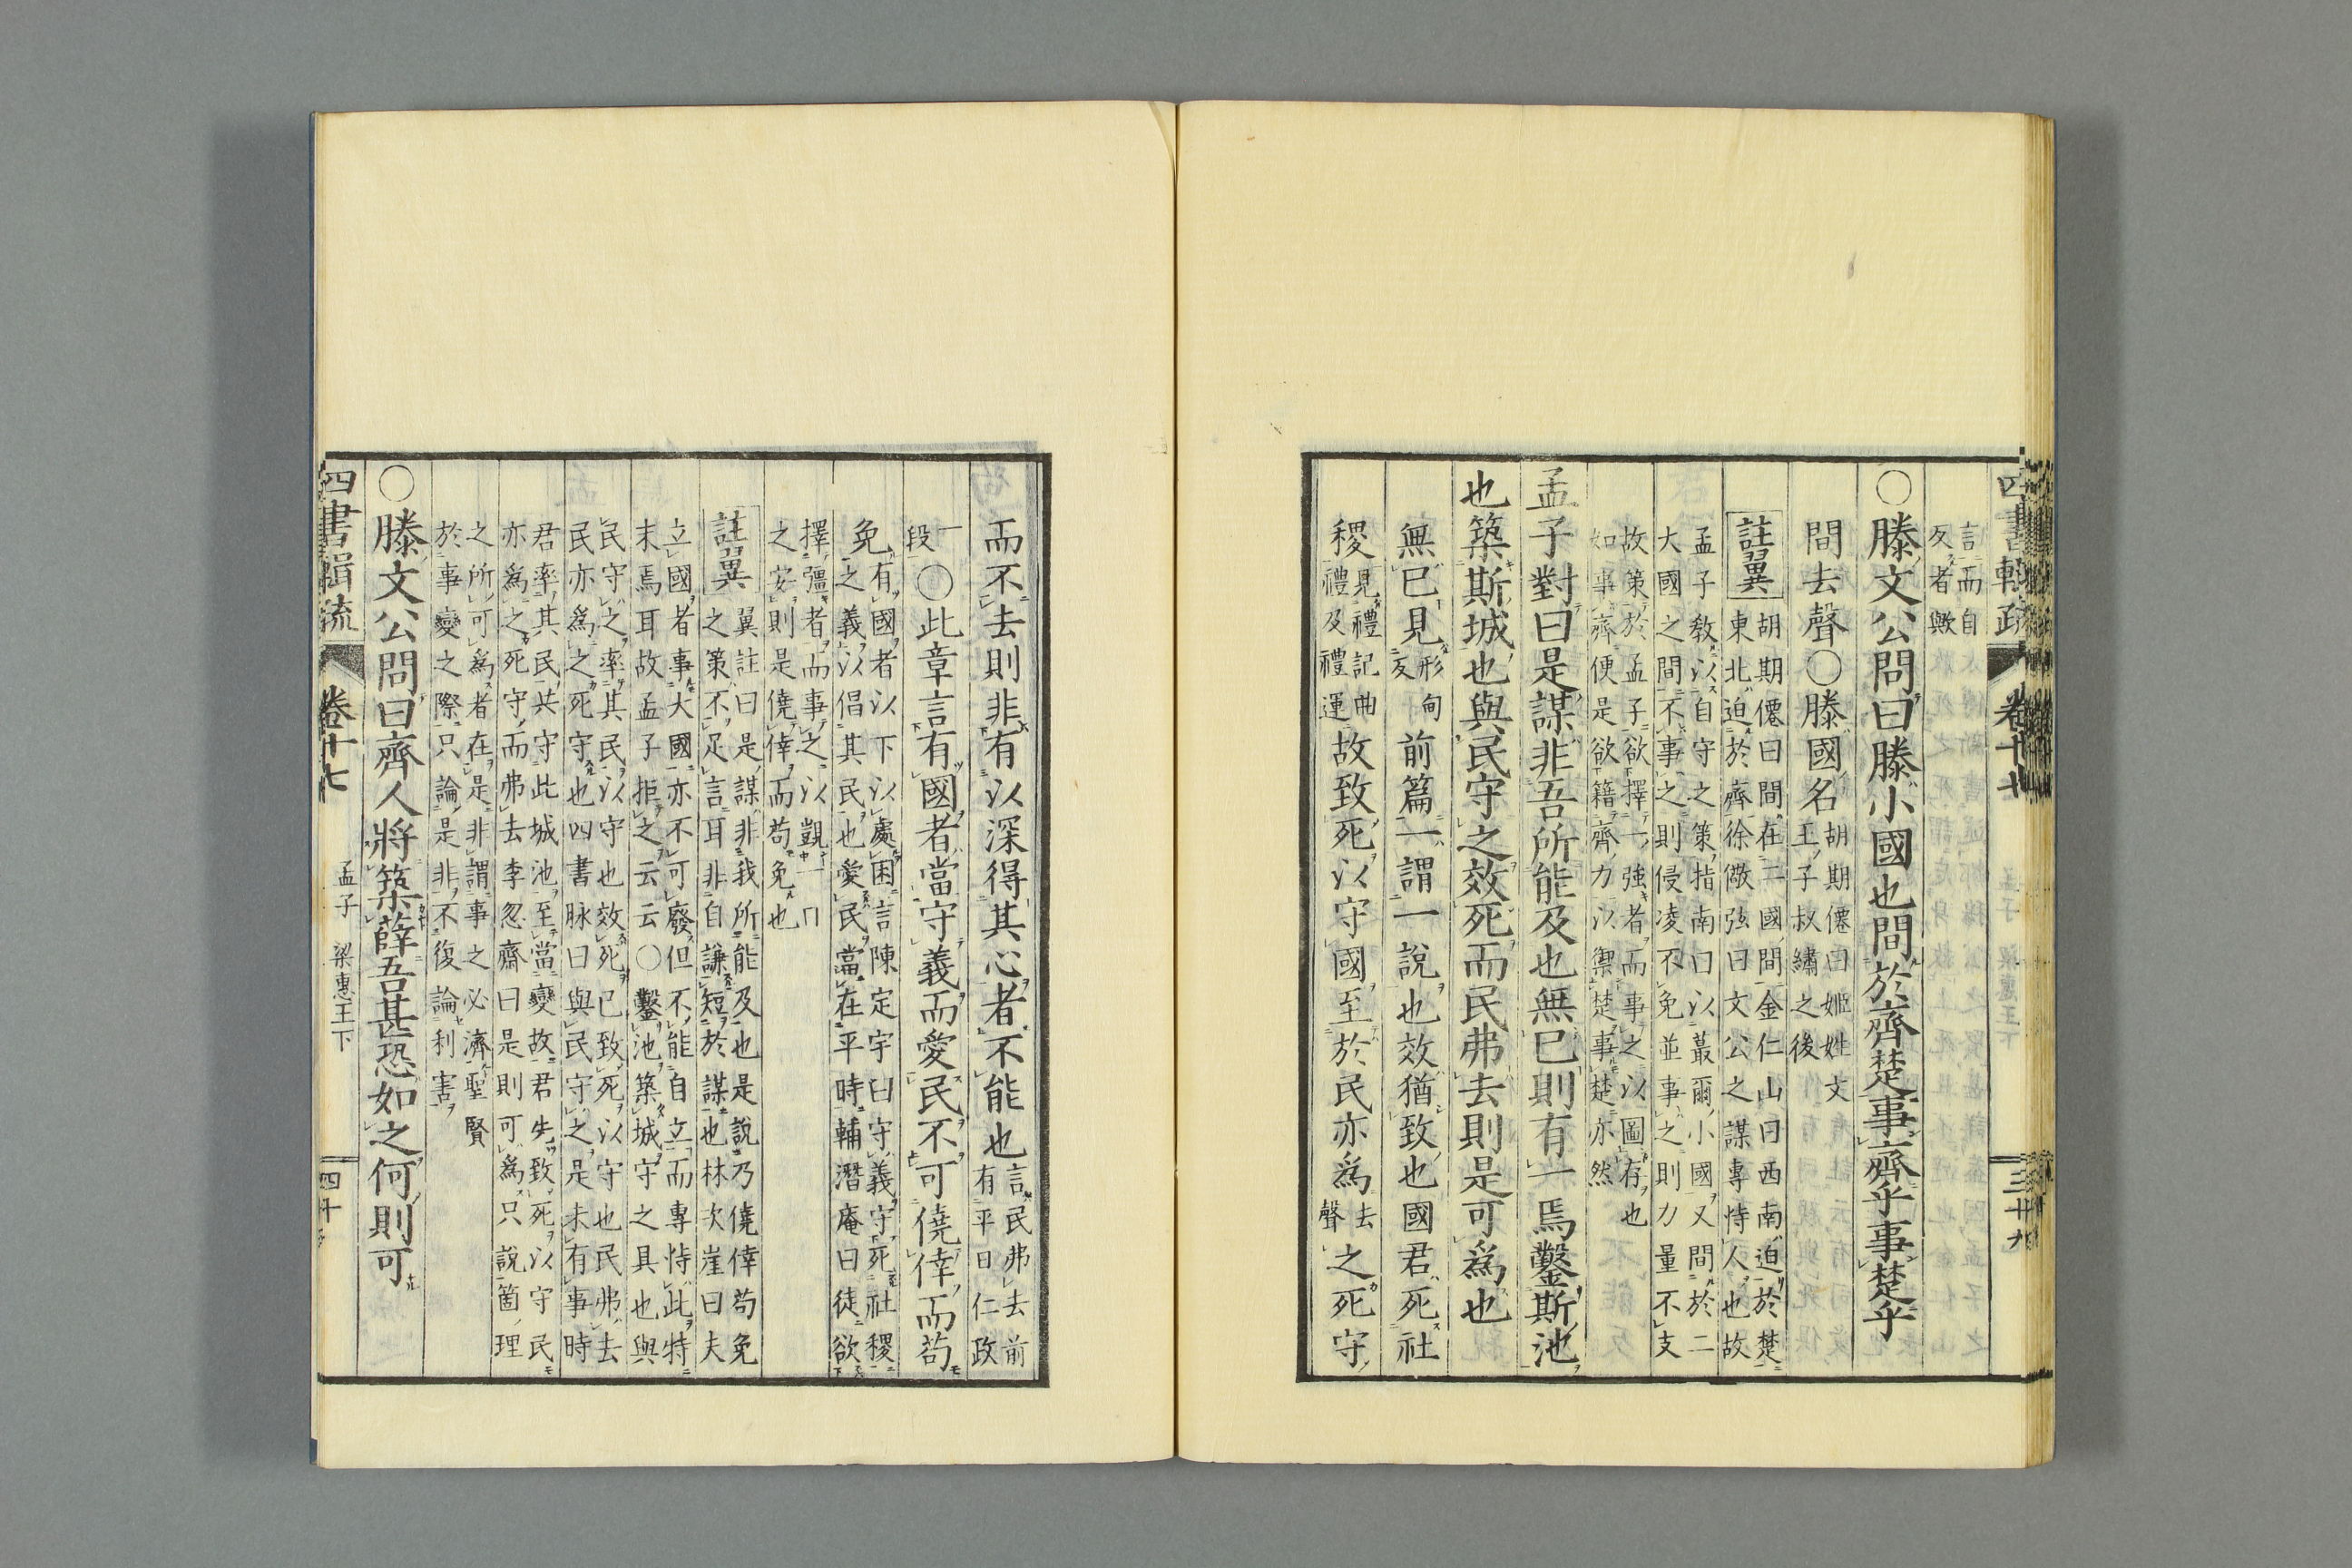 言而自
反者歟
○滕文公問曰滕小國也間於齊楚事齊乎事楚乎
間去聲○滕國名
胡期僊曰姬姓文
王子叔繡之後
註翼
胡期僊曰間在二國間金仁山曰西南迫於楚
東北迫於齊徐儆弦曰文公之謀專恃人也故
孟子教以自守之策指南曰以蕞爾小國又間於二
大國之間不事之則侵凌不免並事之則力量不支
故策於孟子欲擇一強者而事之以圖存也
如事齊便是欲籍齊力以禦楚事楚亦然
孟子對曰是謀非吾所能及也無已則有一焉鑿斯池
也築斯城也與民守之效死而民弗去則是可爲也
無已見
形甸
反
前篇一謂一說也效猶致也國君死社
稷
見禮記曲
禮及禮運
故致死以守國至於民亦爲
去
聲
之死守
而不去則非有以深得其心者不能也
言民弗去前
有平日仁政
一
段
○此章言有國者當守義而愛民不可僥倖而苟
免
有國者以下以處困言陳定宇曰守義守死社稷
之義以倡其民也愛民當在平時輔潛庵曰徒欲
擇彊者而事之以覬一
之安則是僥倖而苟免也
註翼
翼註曰是謀非我所能及也是說乃僥倖苟免
之策不足言耳非自謙短於謀也林次崖曰夫
立國者事大國亦不可廢但不能自立而專恃此特
末焉耳故孟子拒之云云○鑿池築城守之具也與
民守之率其民以守也效死已致死以守也民弗去
民亦爲之死守也四書脉曰與民守之是未有事時
君率其民共守此城池至當變故君失致死以守民
亦爲之死守而弗去李忽齋曰是則可爲只說箇理
之所可爲者在是非謂事之必濟聖賢
於事變之際只論是非不復論利害
○滕文公問曰齊人將築薛吾甚恐如之何則可
四書輯疏
卷十七
孟子
梁惠王下
四十